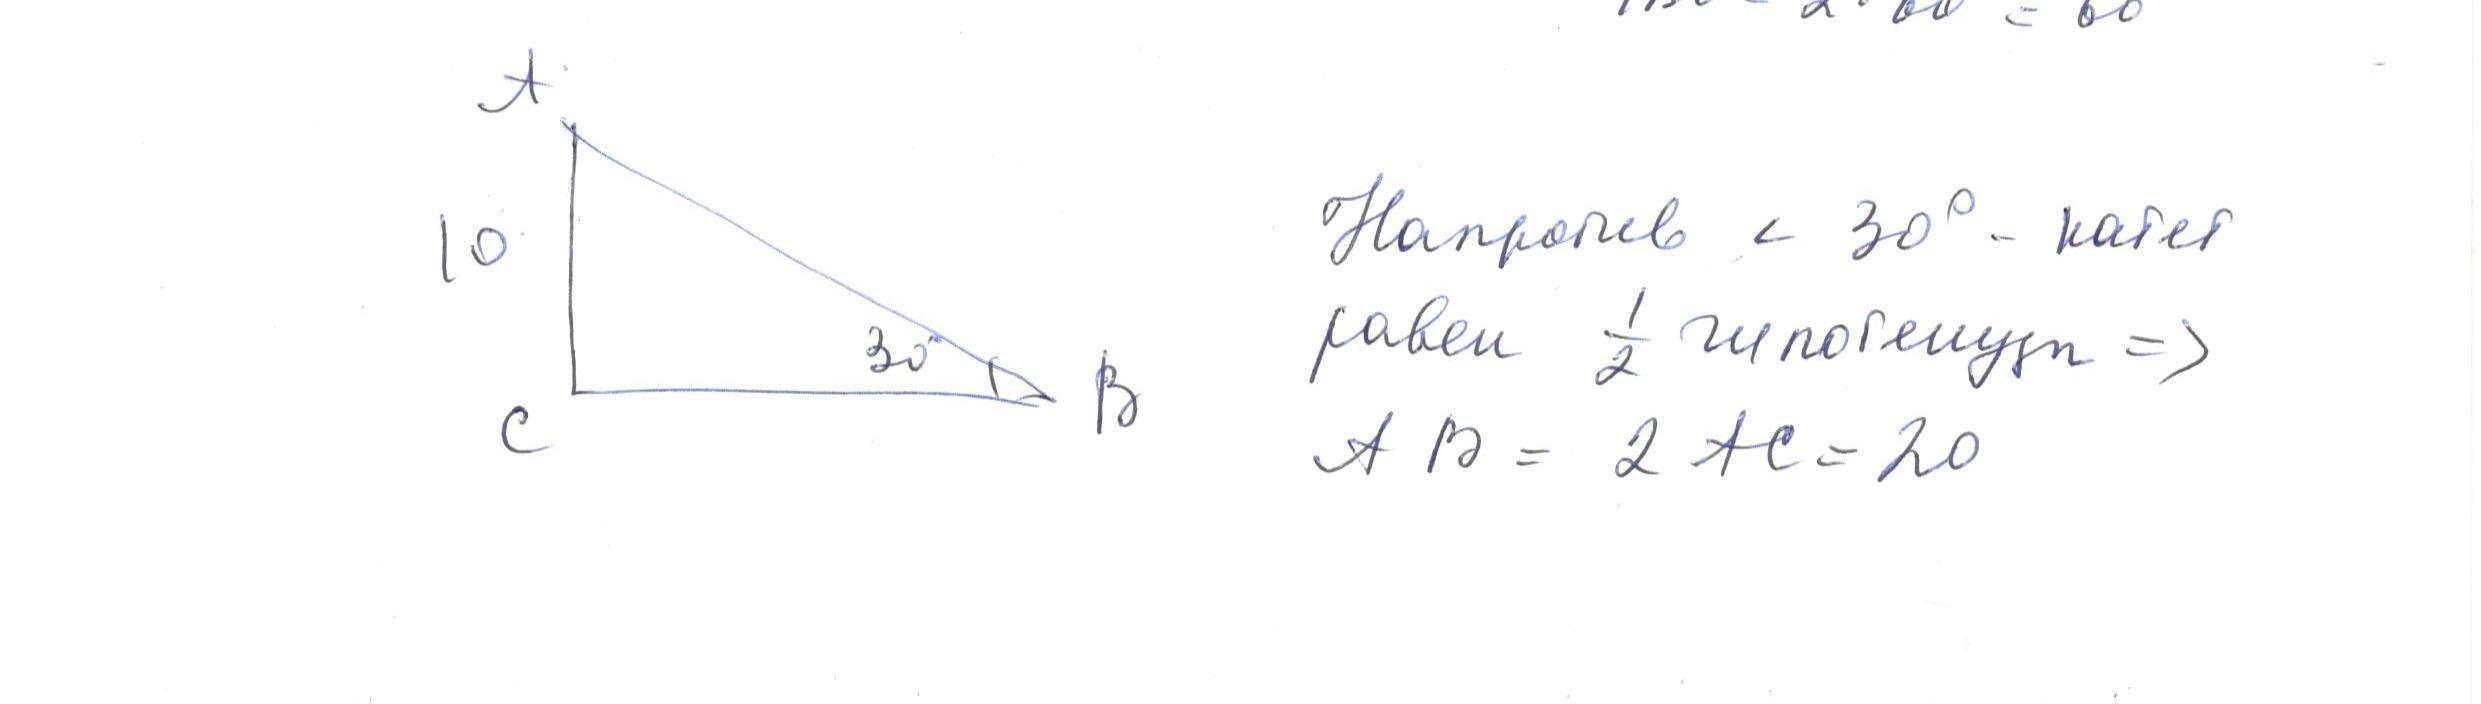 = 60
A
10
30°
C
B
Напротив < 30° - катет
равен 1/2 гипотенузы =>
AB = 2 AC = 20